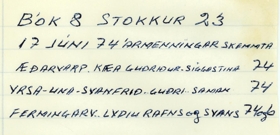 BÓK 8 STOKKUR 23
17 JÚNÍ 74 ÁRMENNINGAR SKEMMTA
ÆDARVARP. KÆA GUDRIDUR. SIGGESTINA 74
YRSA-UNA-SVANFRID. GUDRI. SAMAN 74
FERMINGARV. LYDIU RAFNS og SVANS 74